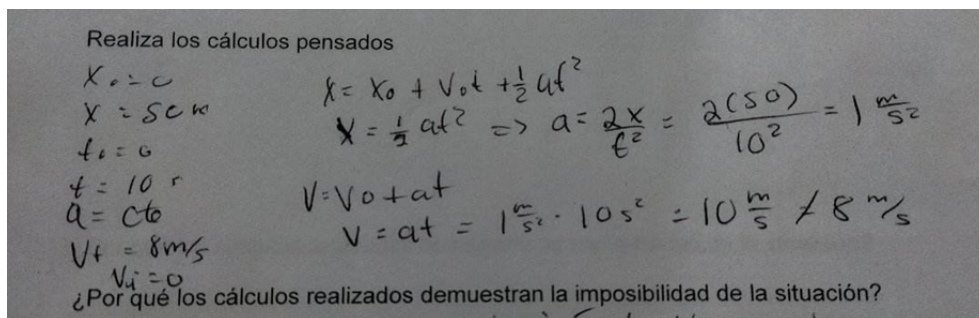 Realiza los cálculos pensados
X₀ = 0
X = 50 m
t₀ = 0
t = 10 s
a = cto
Vf = 8 m/s
Vi = 0
X = X₀ + V₀t + 1/2 at²
X = 1/2 at² => a = 2X/t² = 2(50)/10² = 1 m/s²
V = V₀ + at
V = at = 1 m/s² · 10 s² = 10 m/s ≠ 8 m/s
¿Por qué los cálculos realizados demuestran la imposibilidad de la situación?